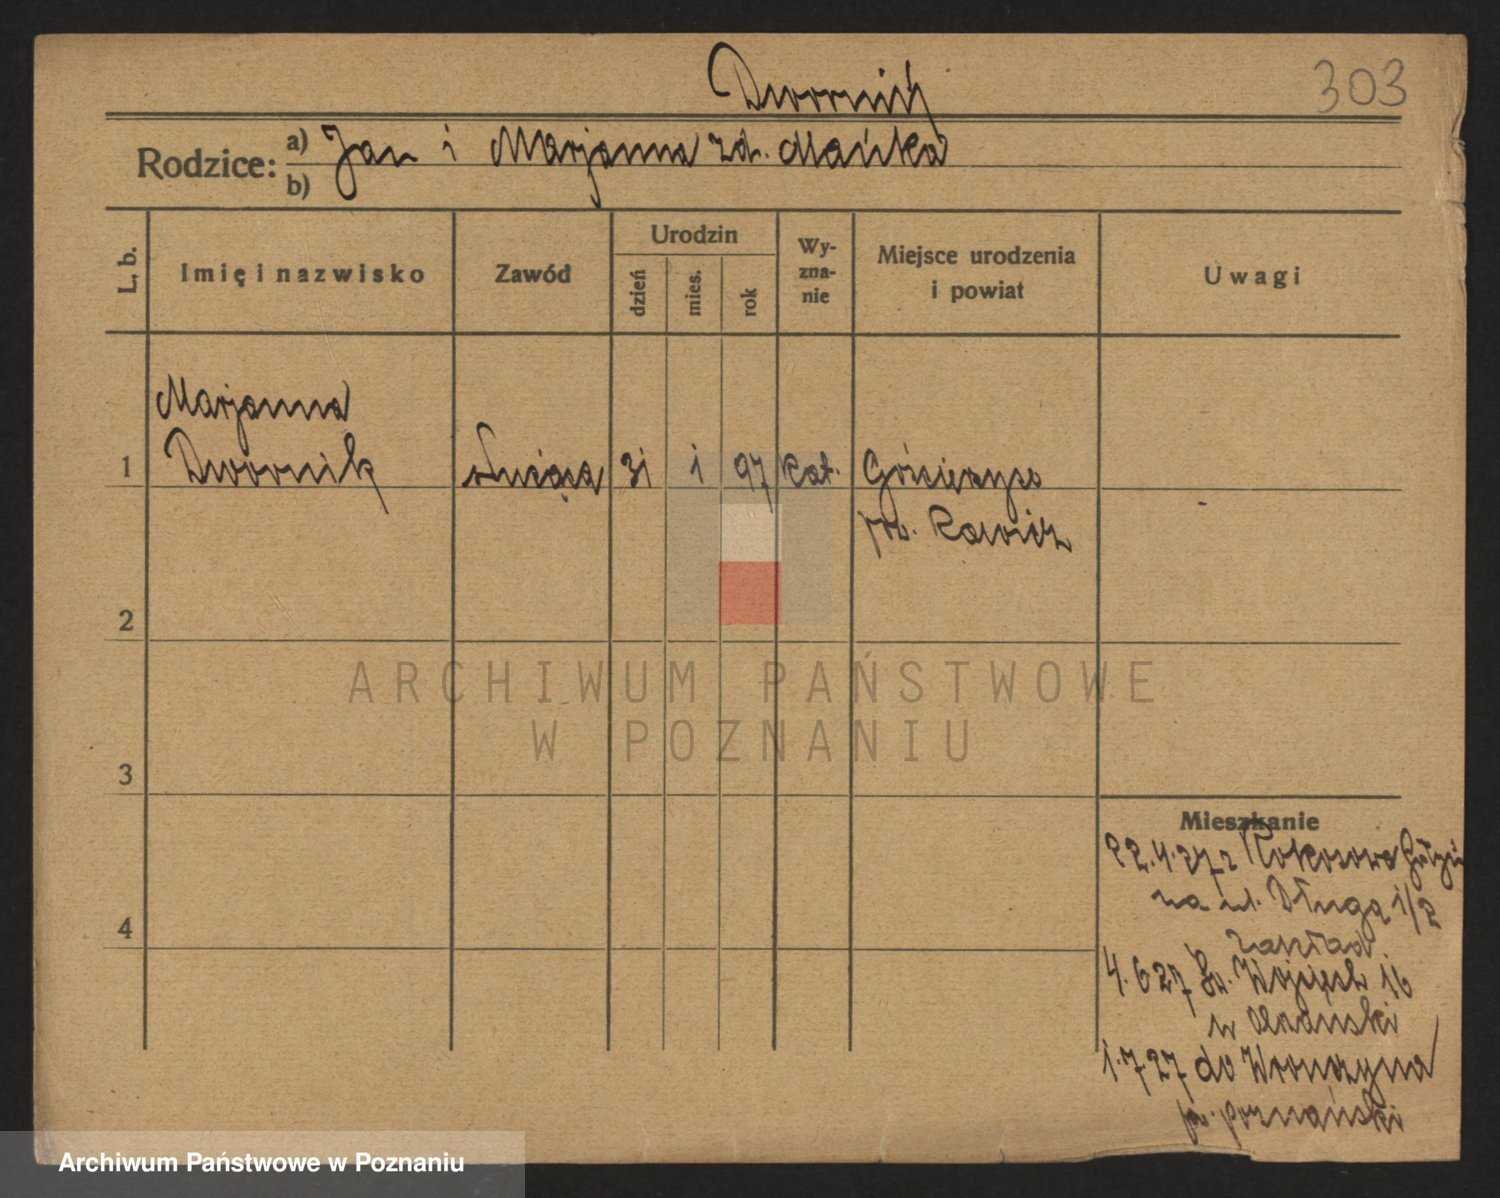 Dwornik
303
Rodzice:
a) Jan i Marjanna zd. Mańka
b)
L. b.
Imię i nazwisko
Zawód
Urodzin
dzień
mies.
rok
Wy-
zna-
nie
Miejsce urodzenia
i powiat
Uwagi
Marjanna
1 Dwornik służąca 31 1 97 kat. Gościejewice
pow. Rawicz
2
3
4
Mieszkanie
22.4.27 z Kokosowa
na ul. Długą 1/2
zakład
4.6.27 Św. Wojciech 16
w
1.7.27 do Wronczyna
p. poznański
ARCHIWUM PAŃSTWOWE
W POZNANIU
Archiwum Państwowe w Poznaniu